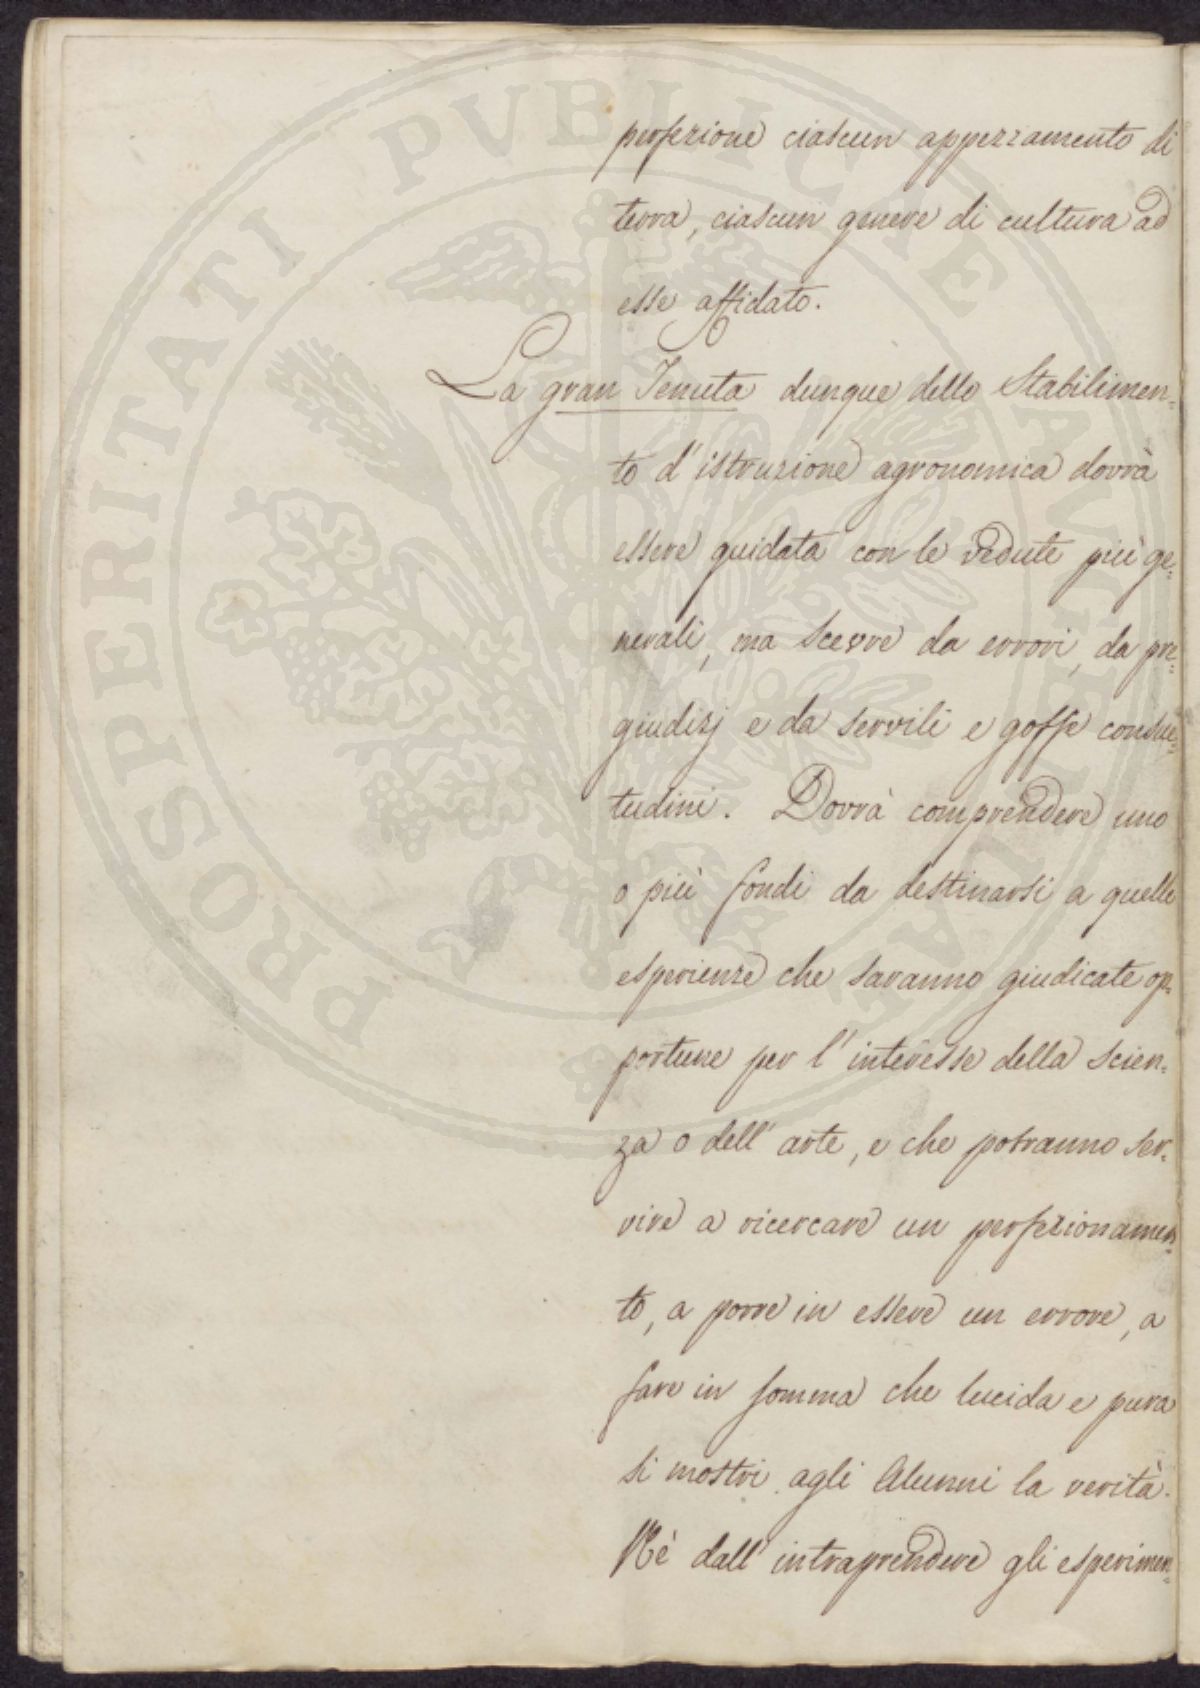 perfezione ciascun appezzamento di
terra, ciascun genere di cultura ad
esse affidato.
La gran Tenuta dunque dello Stabilimen=
to d'istruzione agronomica dovrà
essere guidata con le vedute più ge=
nerali, ma scevre da errori, da pre=
giudizj e da servili e goffe consue=
tudini. Dovrà comprendere uno
o più fondi da destinarsi a quelle
esperienze che saranno giudicate op=
portune per l'interesse della scien=
za o dell'arte, e che potranno ser=
vire a ricercare un perfezionamen=
to, a porre in essere un errore, a
fare in somma che lucida e pura
si mostri agli Alunni la verità.
Nè dall'intraprendere gli esperimen=
PROSPERITATI PVBLICAE AVGENDAE